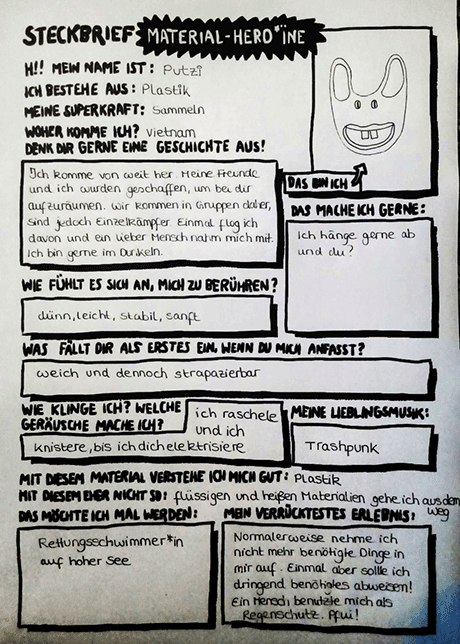 STECKBRIEF MATERIAL-HERO*ÏNE
H!! MEIN NAME IST: Putzi
ICH BESTEHE AUS: Plastik
MEINE SUPERKRAFT: Sammeln
WOHER KOMME ICH? Vietnam
DENK DIR GERNE EINE GESCHICHTE AUS!
Ich komme von weit her. Meine Freunde
und ich wurden geschaffen, um bei dir
aufzuräumen. Wir kommen in Gruppen daher,
sind jedoch Einzelkämpfer. Einmal flog ich
davon und ein lieber Mensch nahm mich mit.
Ich bin gerne im Dunkeln.
DAS BIN ICH
DAS MACHE ICH GERNE:
Ich hänge gerne ab
und du?
WIE FÜHLT ES SICH AN, MICH ZU BERÜHREN?
dünn, leicht, stabil, sanft
WAS FÄLLT DIR ALS ERSTES EIN, WENN DU MICH ANFASST?
weich und dennoch strapazierbar
WIE KLINGE ICH? WELCHE
GERÄUSCHE MACHE ICH?
ich raschele
und ich
knistere, bis ich dich elektrisiere
MEINE LIEBLINGSMUSIK:
Trashpunk
MIT DIESEM MATERIAL VERSTEHE ICH MICH GUT: Plastik
MIT DIESEM EHER NICHT SO: flüssigen und heißen Materialien gehe ich aus dem
Weg
DAS MÖCHTE ICH MAL WERDEN:
Rettungsschwimmer*in
auf hoher See
MEIN VERRÜCKTESTES ERLEBNIS:
Normalerweise nehme ich
nicht mehr benötigte Dinge in
mir auf. Einmal aber sollte ich
dringend benötigtes abweisen!
Ein Mensch benutzte mich als
Regenschutz. Pfui!